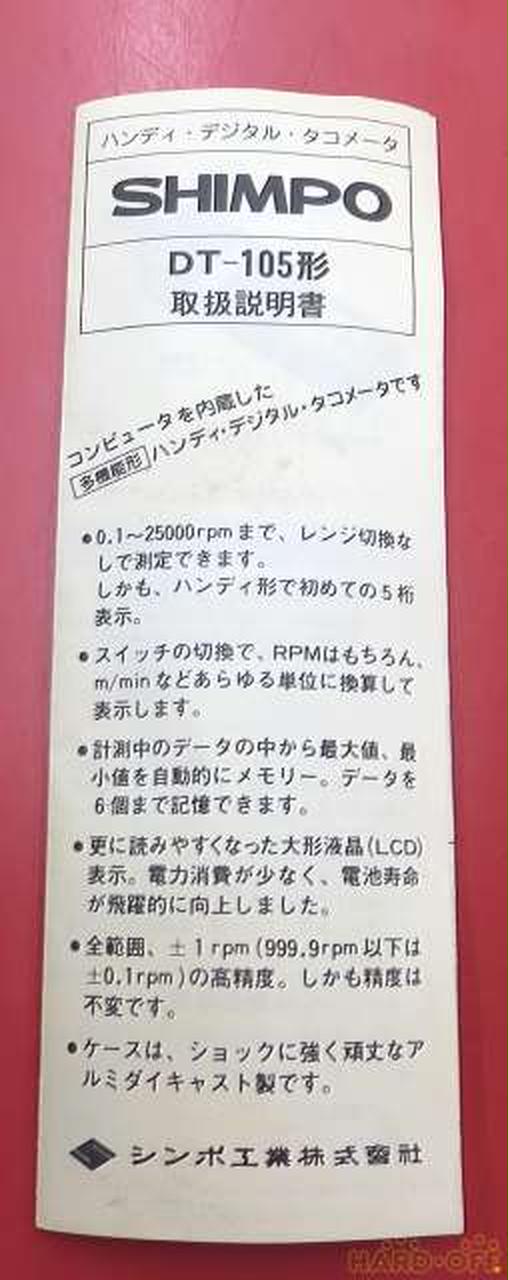 ハンディ・デジタル・タコメータ
SHIMPO
DT-105形
取扱説明書
コンピュータを内蔵した
多機能形 ハンディ・デジタル・タコメータです
●0.1～25000rpmまで、レンジ切換な
しで測定できます。
しかも、ハンディ形で初めての5桁
表示。
●スイッチの切換で、RPMはもちろん、
m/minなどあらゆる単位に換算して
表示します。
●計測中のデータの中から最大値、最
小値を自動的にメモリー。データを
6個まで記憶できます。
●更に読みやすくなった大形液晶(LCD)
表示。電力消費が少なく、電池寿命
が飛躍的に向上しました。
●全範囲、±1rpm(999.9rpm以下は
±0.1rpm)の高精度。しかも精度は
不変です。
●ケースは、ショックに強く頑丈なア
ルミダイキャスト製です。
シンポ工業株式會社
HARD-OFF